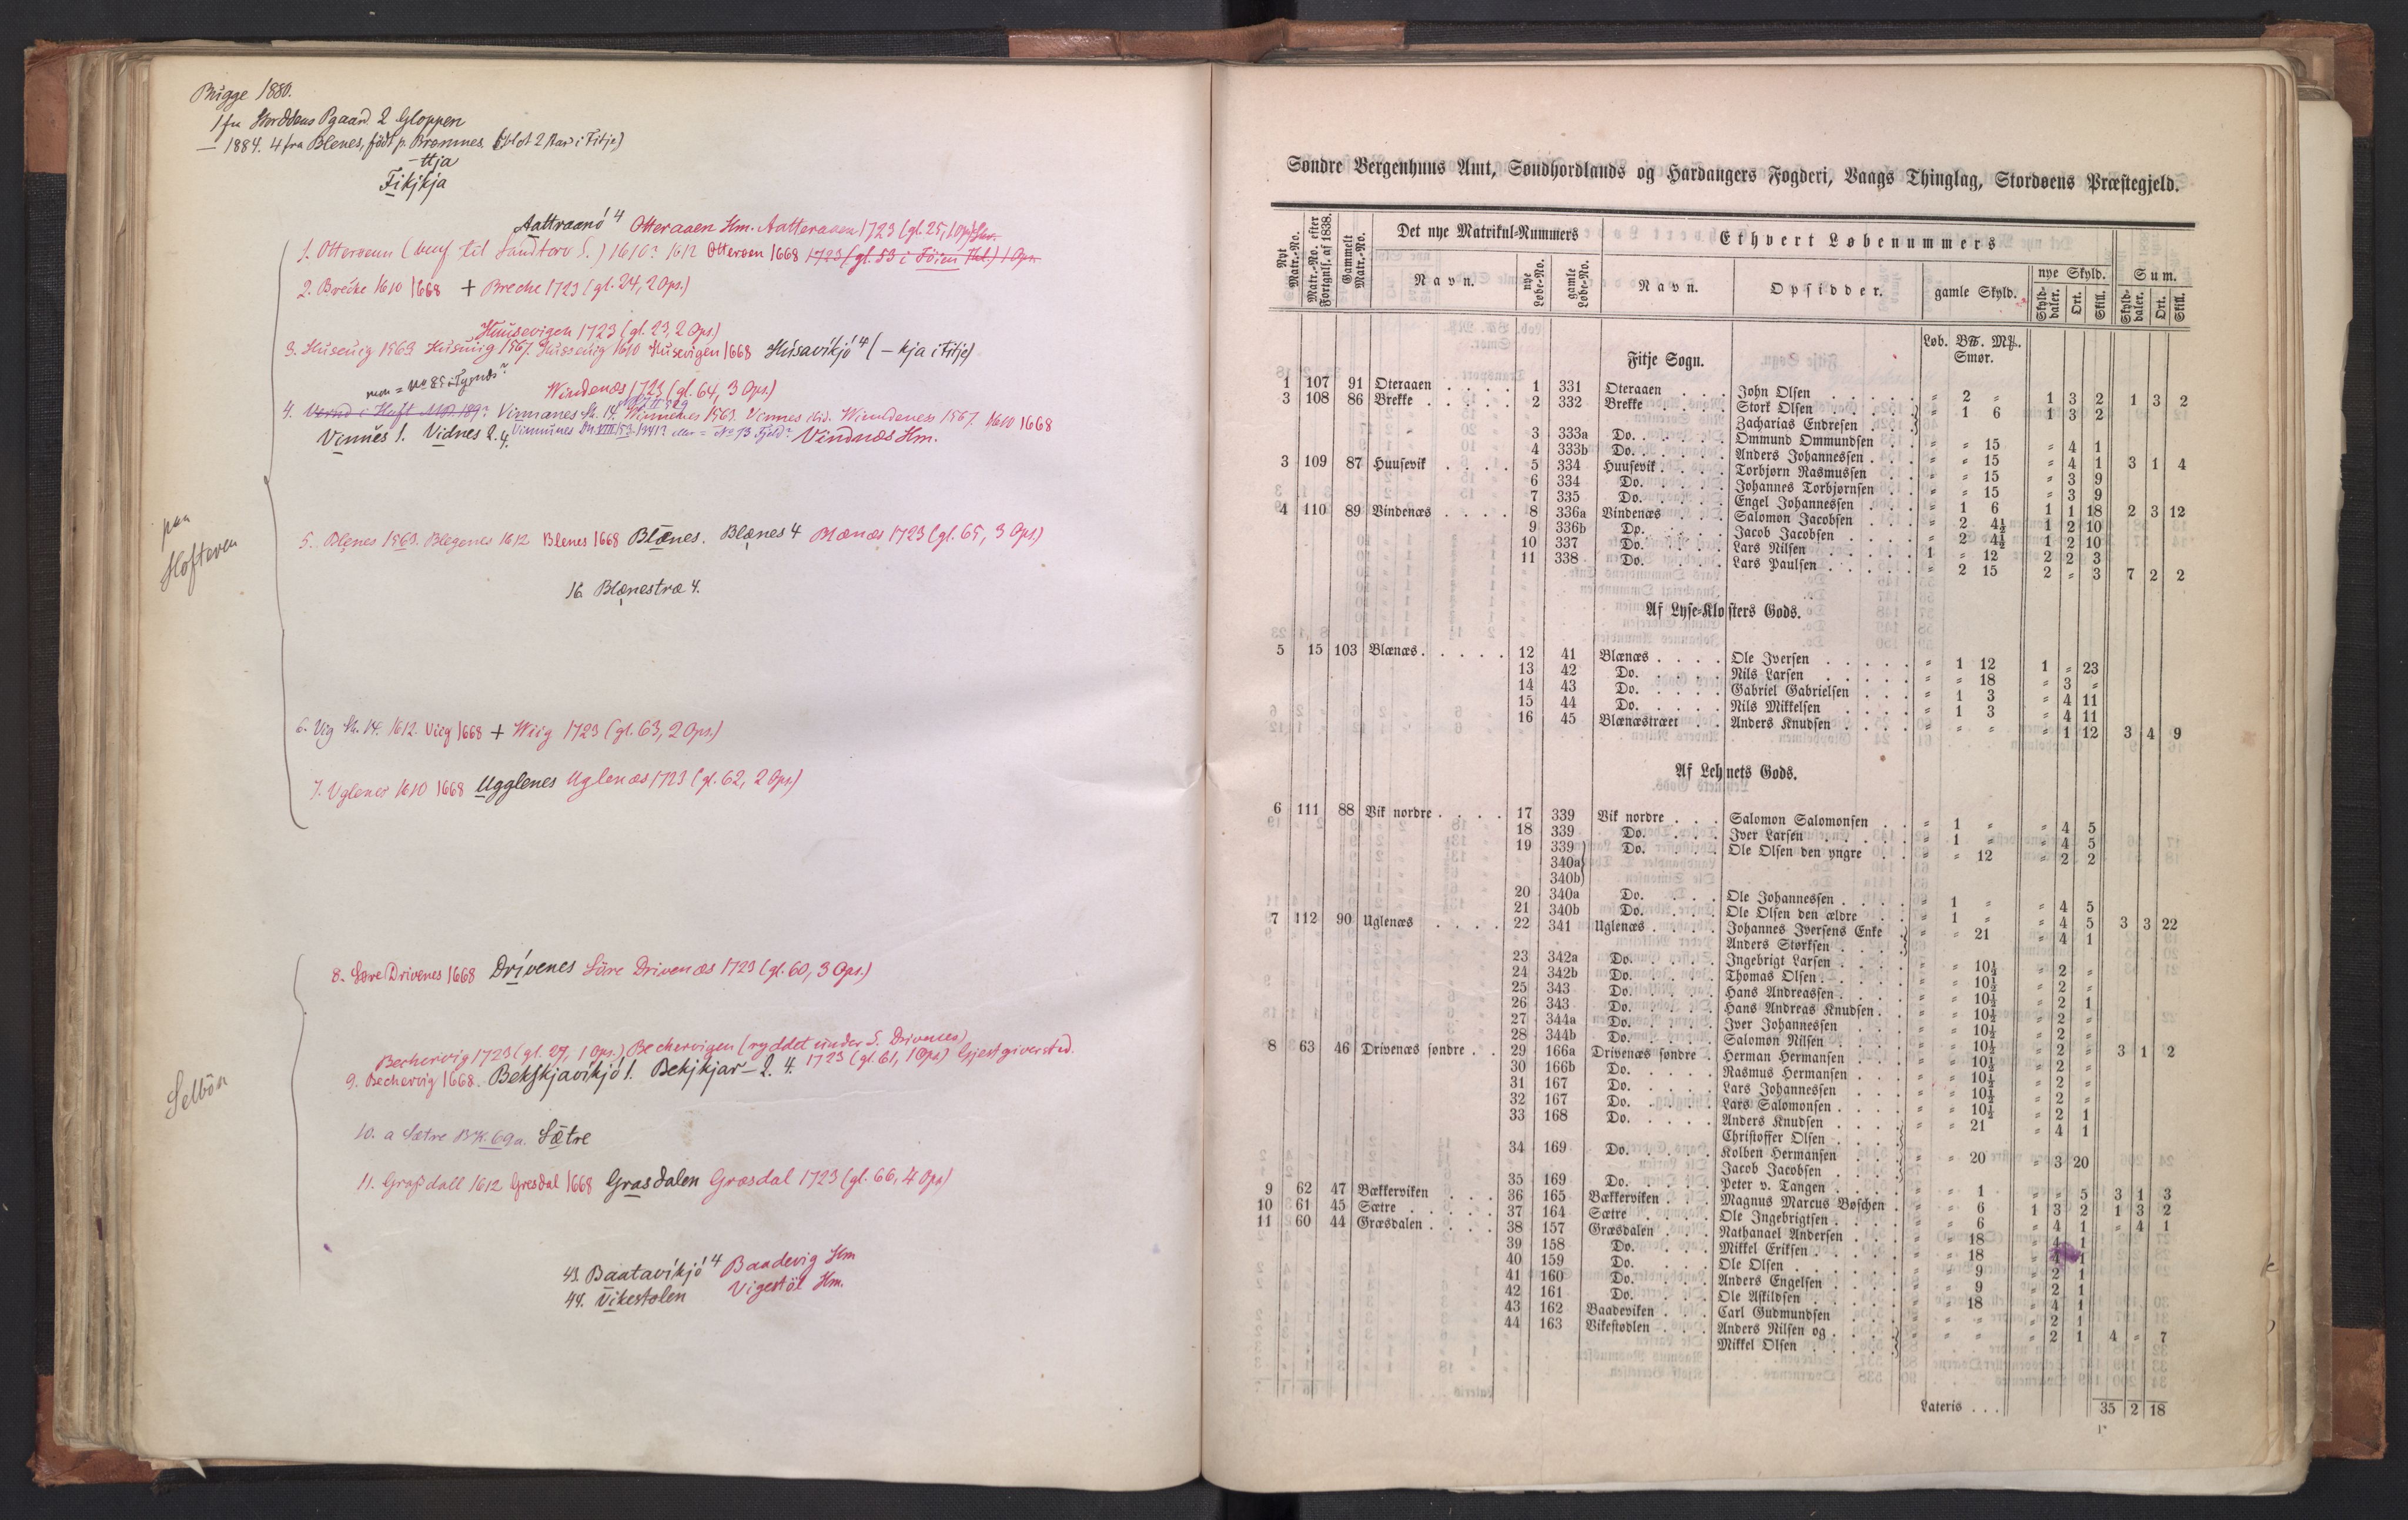 Bugge 1880.
1 fra Stordøens Pgaard. 2 Gloppen
— 1884. 4 fra Blenes, født p. Bremnes. (blot 2 Aar i Fitje)
- ttja
Fikjkja
Aattraanó 4 Otteraaen Hm. Aatteraaen 1723 (gl. 25, 1 Ops)
1. Otterøenn ( til Sandtorv S.) 1610? 1612 Otterøen 1668 1723 (gl. 53 i Föien Thl.) 1 Ops.
2. Brecke 1610 1668 + Breche 1723 (gl. 24, 2 Ops.)
Huusevigen 1723 (gl. 23, 2 Ops.)
3. Huseuig 1563 Husuiig 1567. Husseuig 1610 Husevigen 1668 Húsavikjó 4 (- kja i Fitje)
Windenæs 1723 (gl. 64, 3 Ops.)
4. Vinnanes St. 14. Winnenes 1563. Vinnes ibid. Winndeness 1567. 1610 1668
Vinnes 1. Vidnes 2. 4. Vindnæs Hm.
paa
Hoftøren
5. Blenes 1563. Blegenes 1612 Blenes 1668 Blænes. Blænes 4 Blænæs 1723 (gl. 65, 3 Ops.)
16. Blænestræ 4.
6. Vig St. 14. 1612. Viig 1668 + Wiig 1723 (gl. 63, 2 Ops.)
7. Uglenes 1610 1668 Ugglenes Uglenæs 1723 (gl. 62, 2 Ops.)
8. Søre Drivenes 1668 Drívenes Søre Drivenæs 1723 (gl. 60, 3 Ops.)
Bechervig 1723 (gl. 27, 1 Ops.) Bechervigen (ryddet under S. Drivenes)
1723 (gl. 61, 1 Ops) Gjestgiversted.
9. Bechervig 1668. Bekskjavikjó 1. Bekjkjar- 2. 4.
Selbön
10. a Sætre BK. 69a. Sætre
11. Grassdall 1612 Gresdal 1668 Grasdalen Græsdal 1723 (gl. 66, 4 Ops)
43. Baatavikjó 4 Baadevig Hm
44. Vikestølen Vigestöl Hm.
Søndre Bergenhuus Amt, Søndhordlands og Hardangers Fogderi, Vaags Thinglag, Stordøens Præstegjeld.
Nyt Matr.-No. Matr.-No. efter Fortgnls. af 1838. Gammelt Matr.-No. Det nye Matrikul-Nummers Ethvert Løbenummers
Navn. nye Løbe-No. gamle Løbe-No. Navn. Opsidder. gamle Skyld. nye Skyld. Sum.
Skylddaler. Ort. Skill. Skylddaler. Ort. Skill.
Løb. B℔. M℔. Smør.
Fitje Sogn.
1 107 91 Oteraaen 1 331 Oteraaen John Olsen " 2 " 1 3 2 1 3 2
3 108 86 Brekke 2 332 Brekke Stork Olsen " 1 6 1 3 2
Zacharias Endresen
3 333a Do. Ommund Ommundsen " " 15 " 4 1
4 333b Do. Anders Johannessen " " 15 " 4 1 3 1 4
3 109 87 Huusevik 5 334 Huusevik Torbjørn Rasmussen " " 15 " 3 9
6 334 Do. Johannes Torbjørnsen " " 15 " 3 9
7 335 Do. Engel Johannessen " 1 6 1 1 18 2 3 12
4 110 89 Vindenæs 8 336a Vindenæs Salomon Jacobsen " 2 4½ 1 2 10
9 336b Do. Jacob Jacobsen " 2 4½ 1 2 10
10 337 Do. Lars Nilsen 1 " 12 2 2 3
11 338 Do. Lars Paulsen " 2 15 2 " 3 7 2 2
Af Lyse-Klosters Gods.
5 15 103 Blænæs 12 41 Blænæs Ole Iversen " 1 12 1 " 23
13 42 Do. Nils Larsen " " 18 " 3 "
14 43 Do. Gabriel Gabrielsen " 1 3 " 4 11
15 44 Do. Nils Mikkelsen " 1 3 " 4 11
16 45 Blænæstræet Anders Knudsen " " " " 1 12 3 4 9
Af Lehnets Gods.
6 111 88 Vik nordre 17 339 Vik nordre Salomon Salomonsen " 1 " " 4 5
18 339 Do. Iver Larsen " 1 " " 4 5
19 339 Do. Ole Olsen den yngre " " 12 " 2 2
340a
340b
20 340a Do. Ole Johannessen " 1 " " 4 5
21 340b Do. Ole Olsen den ældre " 1 " " 4 5 3 3 22
7 112 90 Uglenæs 22 341 Uglenæs Johannes Iversens Enke " " 21 " 4 1
Anders Størksen
23 342a Do. Ingebrigt Larsen " " 10½ " 2 "
24 342b Do. Thomas Olsen " " 10½ " 2 "
25 343 Do. Hans Andreassen " " 10½ " 2 1
26 343 Do. Hans Andreas Knudsen " " 10½ " 2 "
27 344a Do. Iver Johannessen " " 10½ " 2 "
28 344b Do. Salomon Nilsen " " 10½ " 2 " 3 1 2
8 63 46 Drivenæs søndre 29 166a Drivenæs søndre Herman Hermansen " " 10½ " 2 "
30 166b Do. Rasmus Hermansen " " 10½ " 2 "
31 167 Do. Lars Johannessen " " 10½ " 2 "
32 167 Do. Lars Salomonsen " " 10½ " 2 1
33 168 Do. Anders Knudsen " " 21 " 4 1
Christoffer Olsen
34 169 Do. Kolben Hermansen " " 20 " 3 20
Jacob Jacobsen
35 169 Do. Peter v. Tangen " " 1 " " 5 3 1 3
9 62 47 Bækkerviken 36 165 Bækkerviken Magnus Marcus Bøschen " " 6 1 3 2 1 3 2
10 61 45 Sætre 37 164 Sætre Ole Ingebrigtsen " " 6 " 4 1 " 4 1
11 60 44 Græsdalen 38 157 Græsdalen Nathanael Andersen " " 18 " 4 1
39 158 Do. Mikkel Eriksen " " 18 " 4 1
40 159 Do. Ole Olsen " " 9 " 2 1
41 160 Do. Anders Engelsen " " 9 " 2 1
42 161 Do. Ole Askildsen " " 18 " 4 1
43 162 Baadeviken Carl Gudmundsen " " " " 2 1
44 163 Vikestødlen Anders Nilsen og " " " " 2 1 4 " 7
Mikkel Olsen
Lateris . . . 35 2 18